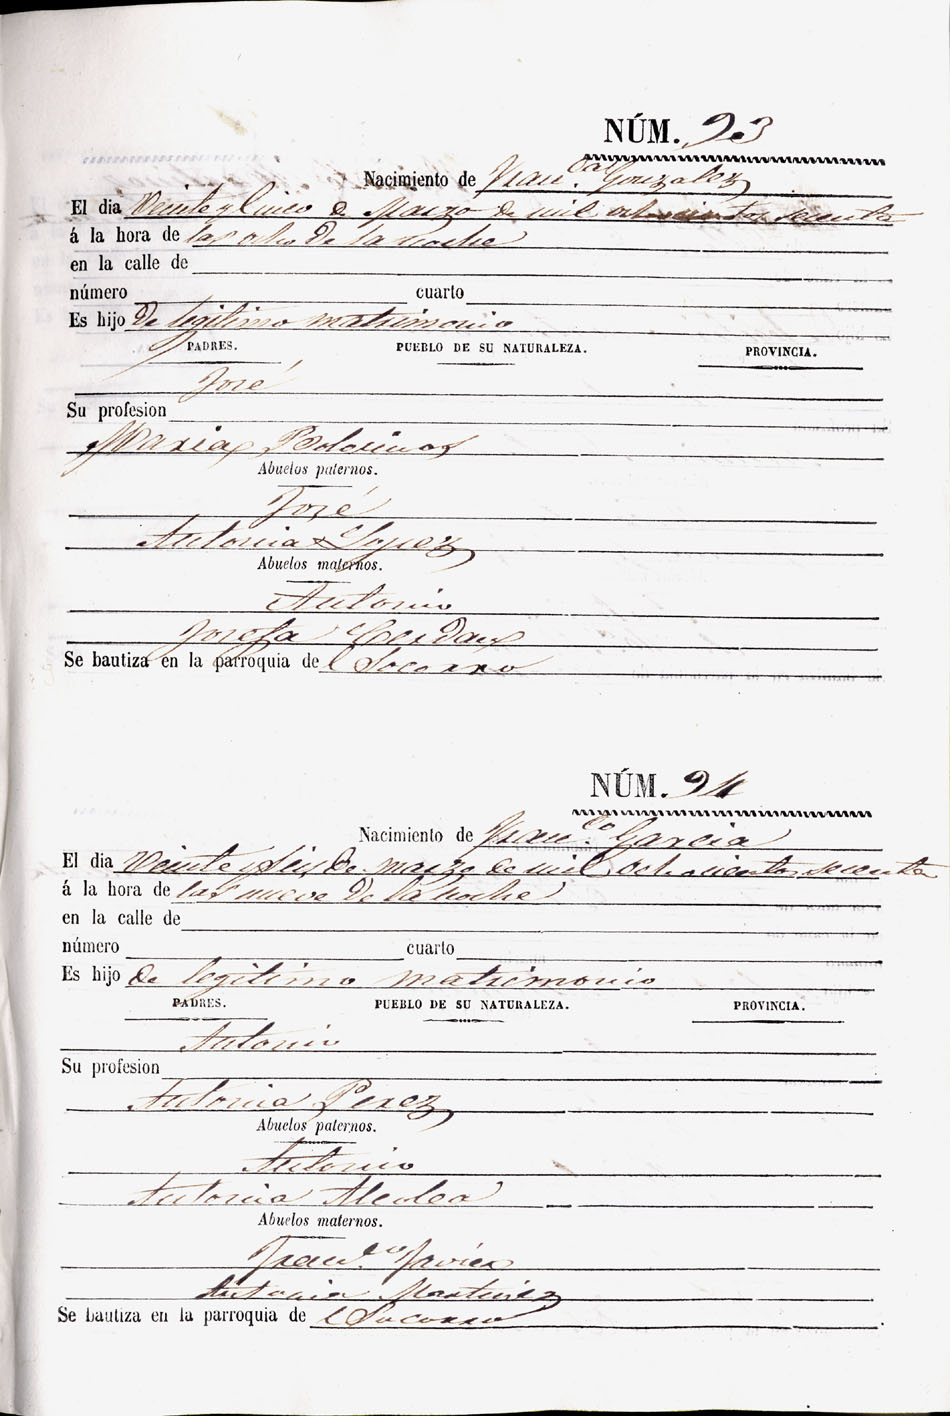 NÚM. 93
Nacimiento de Fran.ca Gonzalez
El dia Veinte y Cinco de Marzo de mil ochocientos sesenta
á la hora de las ocho de la noche
en la calle de
número cuarto
Es hijo de legitimo matrimonio
PADRES. PUEBLO DE SU NATURALEZA. PROVINCIA.
José
Su profesion
Maria
Abuelos paternos.
José
Antonia Lopez
Abuelos maternos.
Antonio
Josefa Cerdan
Se bautiza en la parroquia de l Socorro
NÚM. 94
Nacimiento de Fran.co Garcia
El dia Veinte y Seis de marzo de mil ochocientos sesenta
á la hora de las nueve de la noche
en la calle de
número cuarto
Es hijo de legitimo matrimonio
PADRES. PUEBLO DE SU NATURALEZA. PROVINCIA.
Antonio
Su profesion
Antonia Perez
Abuelos paternos.
Antonio
Antonia Alcolea
Abuelos maternos.
Fran.co Javier
Antonia Martinez
Se bautiza en la parroquia de l Socorro